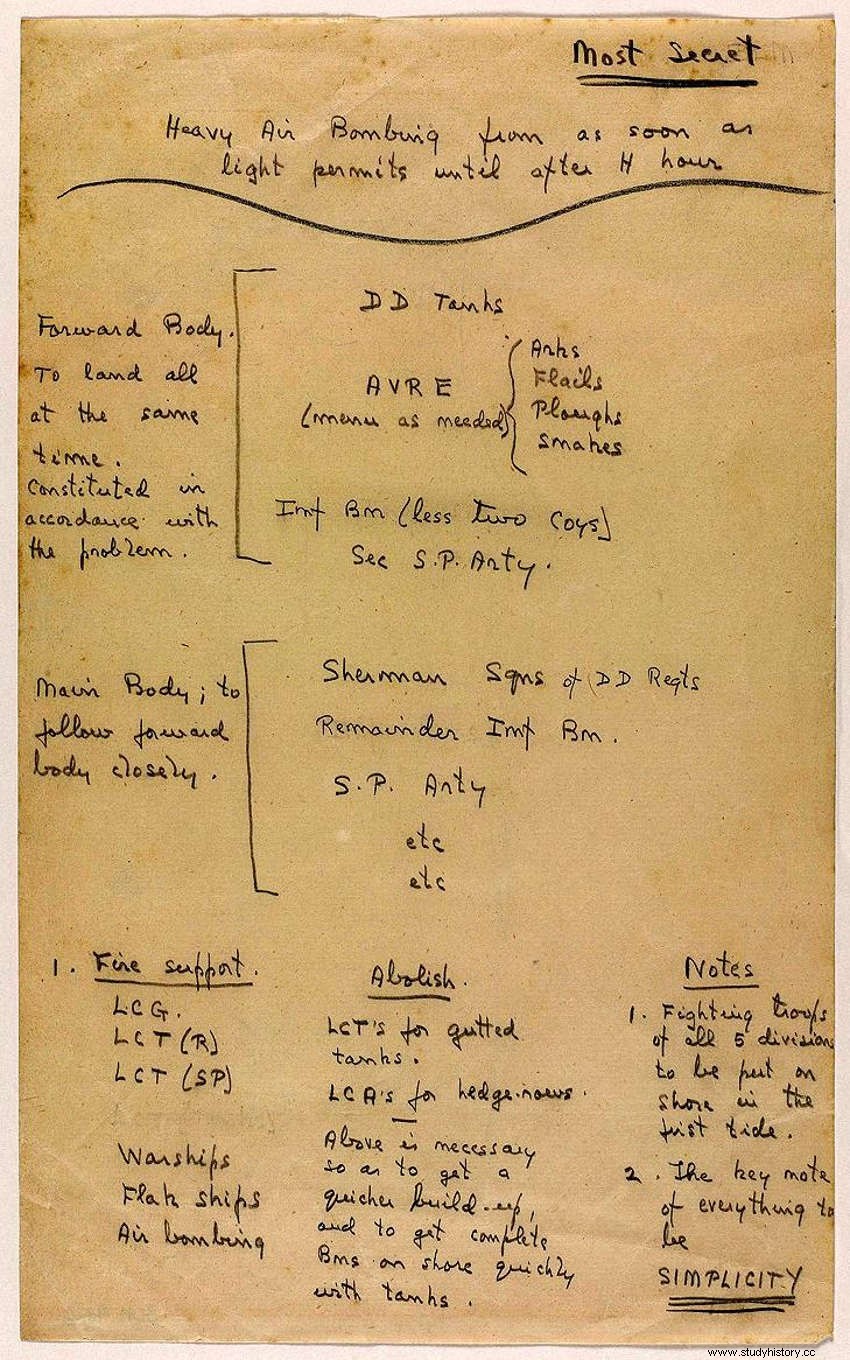 Most Secret
Heavy Air Bombing from as soon as
light permits until after H hour
Forward Body.
To land all
at the same
time.
Constituted in
accordance with
the problem.
DD Tanks
AVRE
(menu as needed)
Arks
Flails
Ploughs
Snakes
Inf Bn (less two Coys)
Sec S.P. Arty.
Main Body; to
follow forward
body closely.
Sherman Sqns of DD Regts
Remainder Inf Bn.
S.P. Arty
etc
etc
1. Fire support.
LCG.
LCT (R)
LCT (SP)
Warships
Flak ships
Air bombing
Abolish.
LCT's for gutted
tanks.
LCA's for hedge-rows.
Above is necessary
so as to get a
quicker build-up,
and to get complete
Bns on shore quickly
with tanks.
Notes
1. Fighting troops
of all 5 divisions
to be put on
shore in the
first tide.
2. The key note
of everything to
be
SIMPLICITY
www.studyhistory.cc